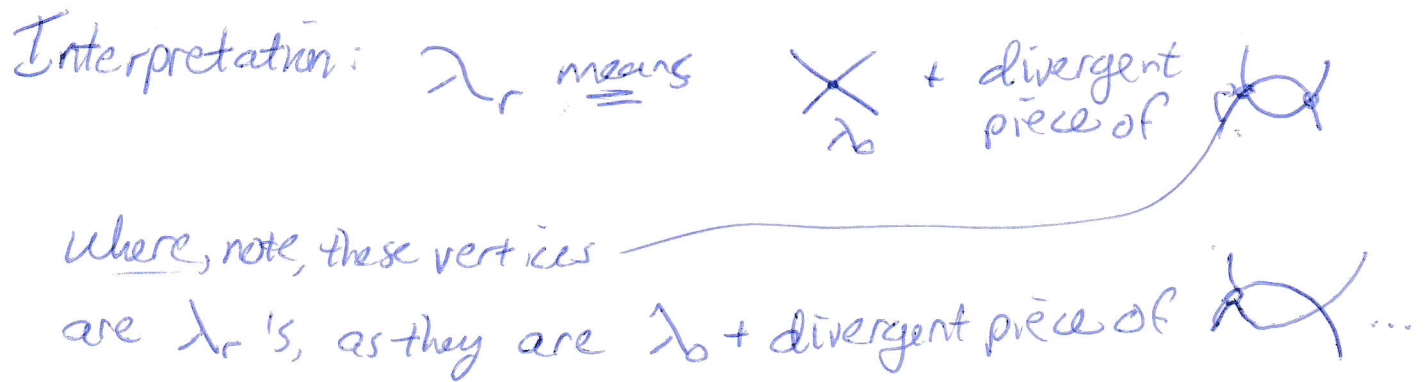 Interpretation: λr means + divergent
λ0 piece of
where, note, these vertices
are λr's, as they are λ0 + divergent piece of ...